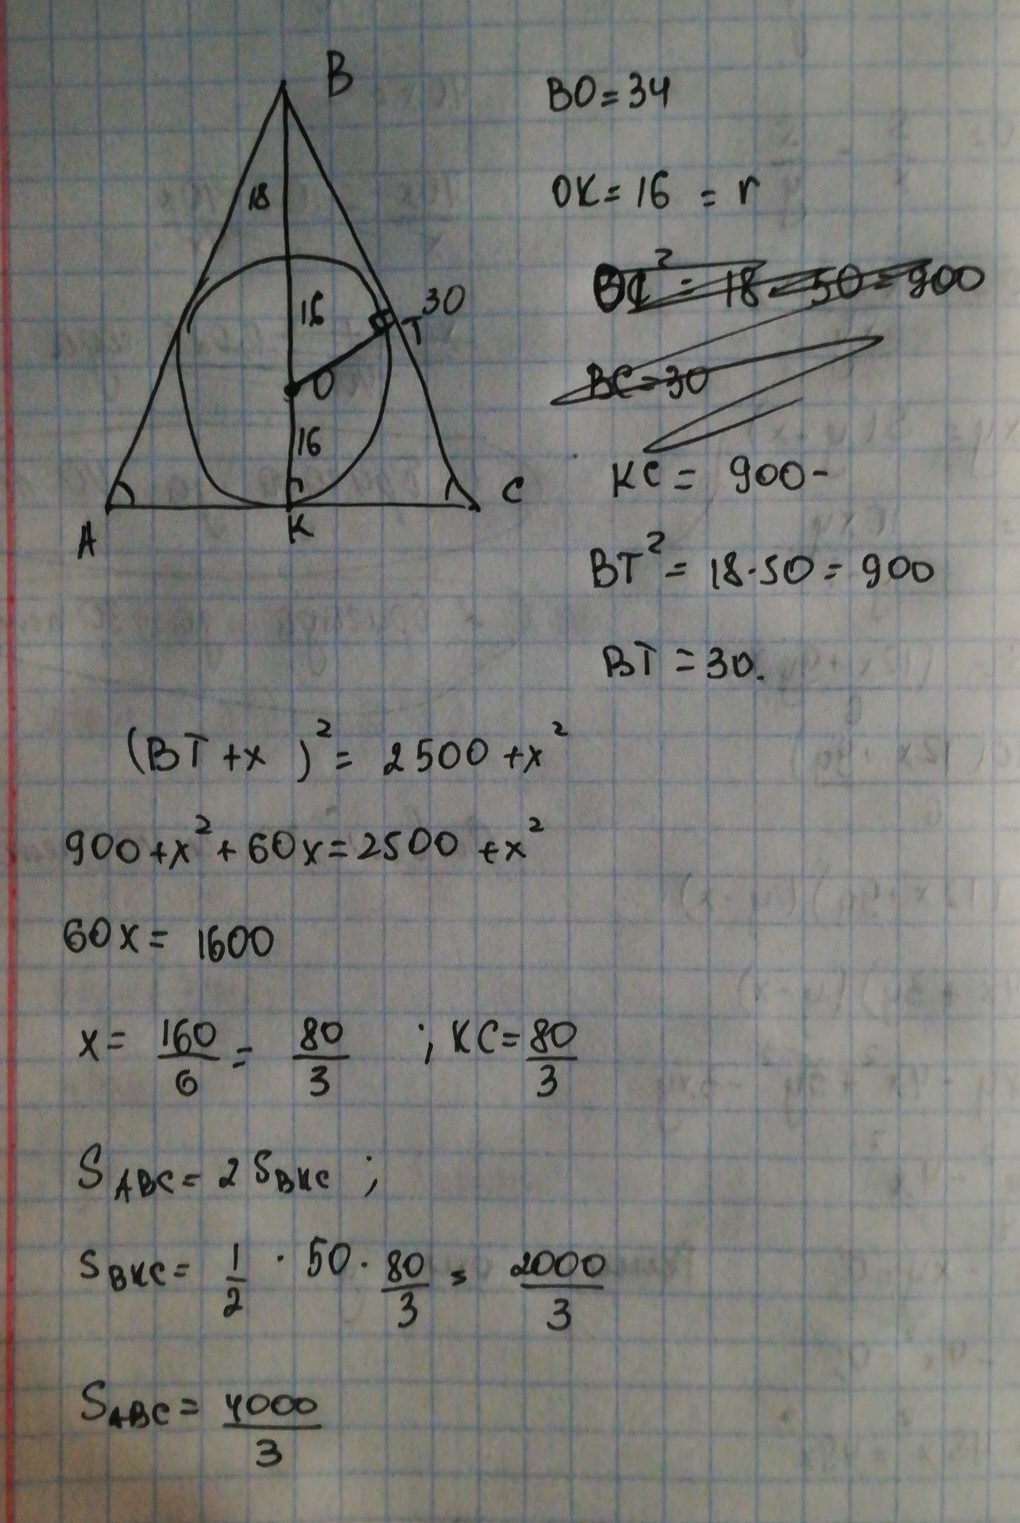 B
18
16
30
T
O
16
A
K
C
BO = 34
OK = 16 = r
BC² = 18 · 50 = 900
BC = 30
KC = 900 -
BT² = 18 · 50 = 900
BT = 30.
(BT + x )² = 2500 + x²
900 + x² + 60x = 2500 + x²
60x = 1600
x = 160/6 = 80/3 ; KC = 80/3
S ABC = 2 S BKC ;
S BKC = 1/2 · 50 · 80/3 = 2000/3
S ABC = 4000/3